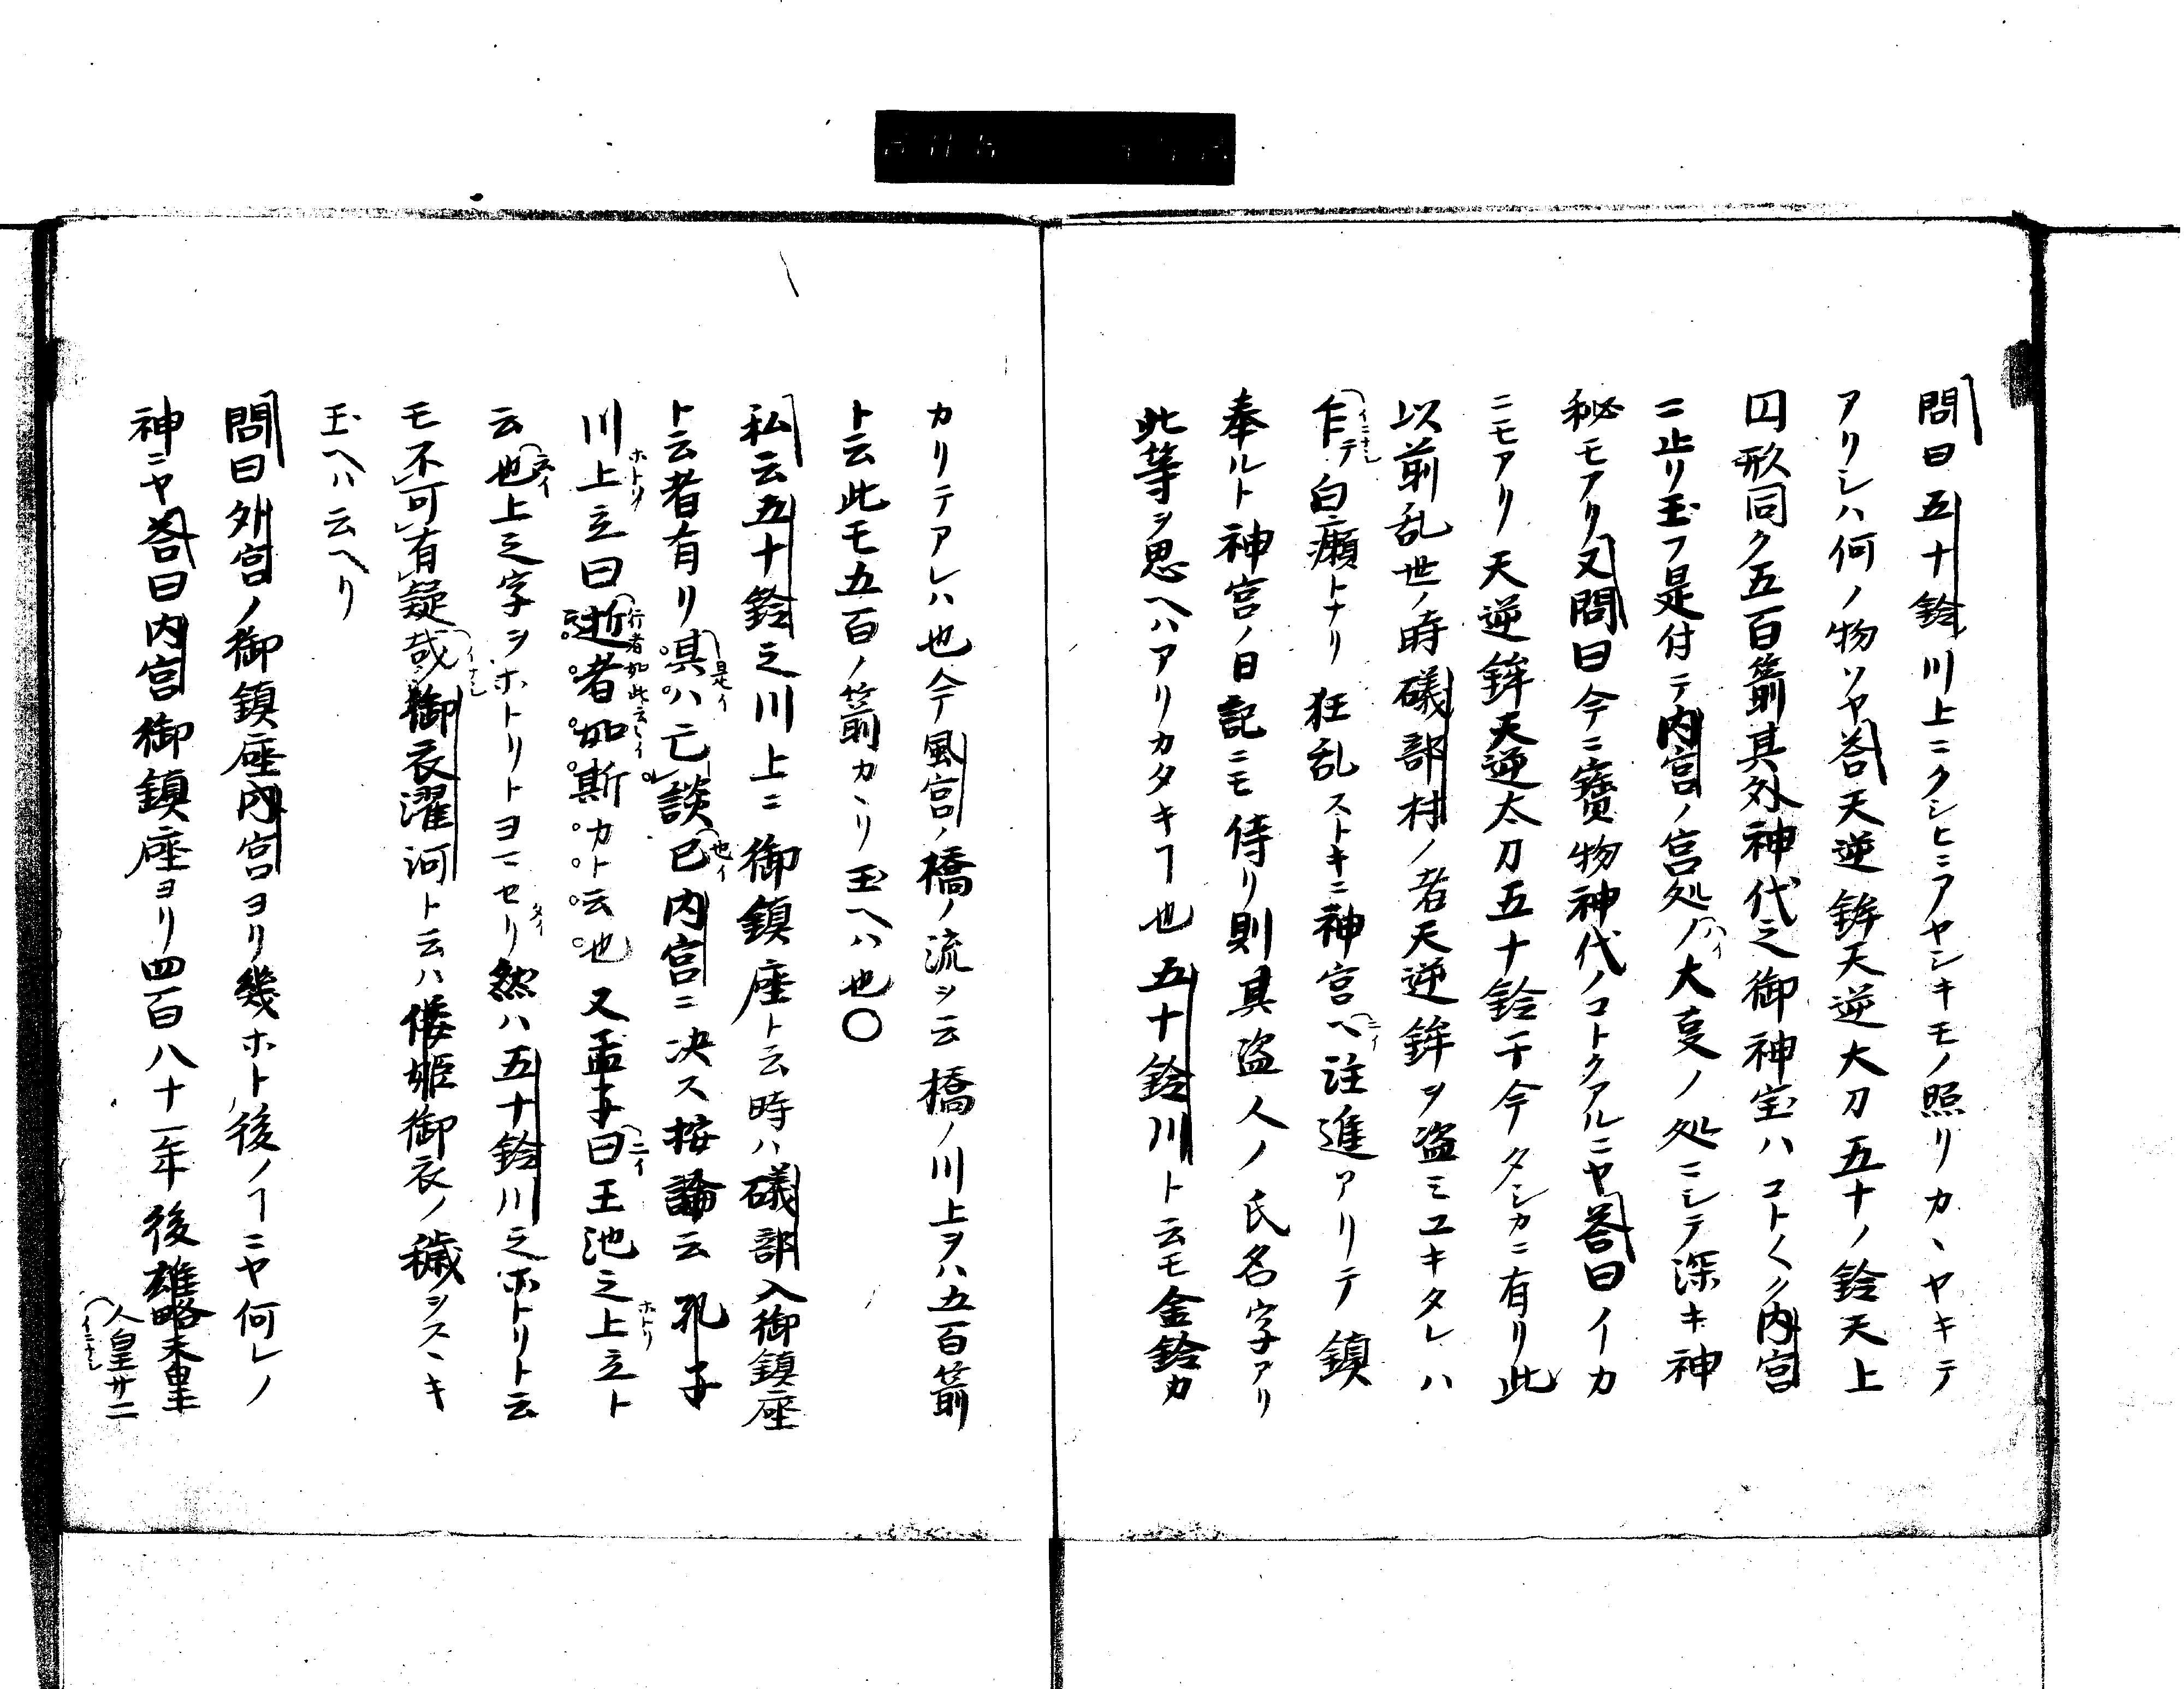 問曰五十鈴川上ニクシヒニアヤシキモノ照リカヽヤキテ
アリシハ何ノ物ソヤ答天逆鉾天逆大刀五十ノ鈴天上
図形同ク五百箭其外神代之御神宝ハコト〱ク内宮
ニ止リ玉フ是付テ内宮ノ宮処ノ大事ノ処ニシテ深キ神
ハイ
秘モアリ又問曰今ニ寶物神代ノコトクアルニヤ答曰イカ
ニモアリ天逆鉾天逆太刀五十鈴于今タシカニ有リ此
以前乱世ノ時礒部村ノ者天逆鉾ヲ盗ミユキタレハ
乍テ白癩トナリ狂乱ストキニ神宮ヘ注進アリテ鎮
イニナシ
ニイ
奉ルト神宮ノ日記ニモ侍リ則其盗人ノ氏名字アリ
此等ヲ思ヘハアリカタキヿ也五十鈴川ト云モ金鈴カ
カリテアレハ也今風宮ノ橋ノ流ヲ云橋ノ川上ヲハ五百箭
ト云此モ五百ノ箭カヽリ玉ヘハ也〇
私云五十鈴之川上ニ御鎮座ト云時ハ礒部入御鎮座
ト云者有リ其ハ亡談已内宮ニ决ス按論云孔子
是イ
也イ
川上立曰逝者如斯カト云也又孟子曰王池之上立ト
ホトリ
行者如此云々イ
ニイ
ホトリ
云也上之字ヲホトリトヨマセリ然ハ五十鈴川之ホトリト云
モ不可有疑哉御衣濯河ト云ハ倭姫御衣ノ穢ヲスヽキ
イナシ
玉ヘハ云ヘリ
問曰外宮ノ御鎮座内宮ヨリ幾ホト後ノヿニヤ何レノ
神ニヤ答曰内宮御鎮座ヨリ四百八十一年後雄略天皇
人皇廿二
イニナシ